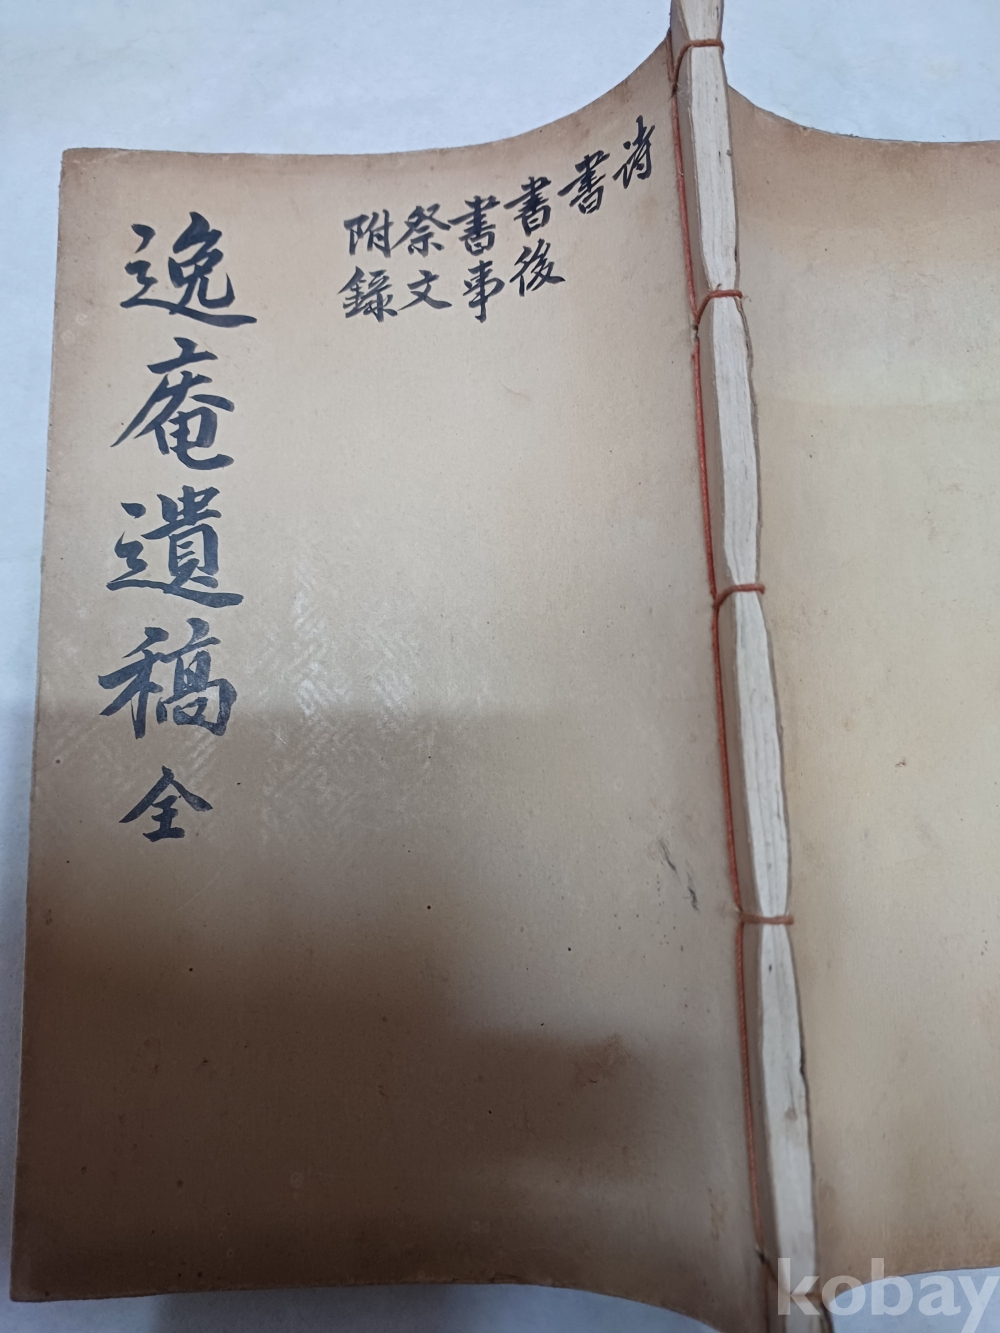 詩
書
書後
書事
祭文
附錄
逸庵遺稿 全
kobay